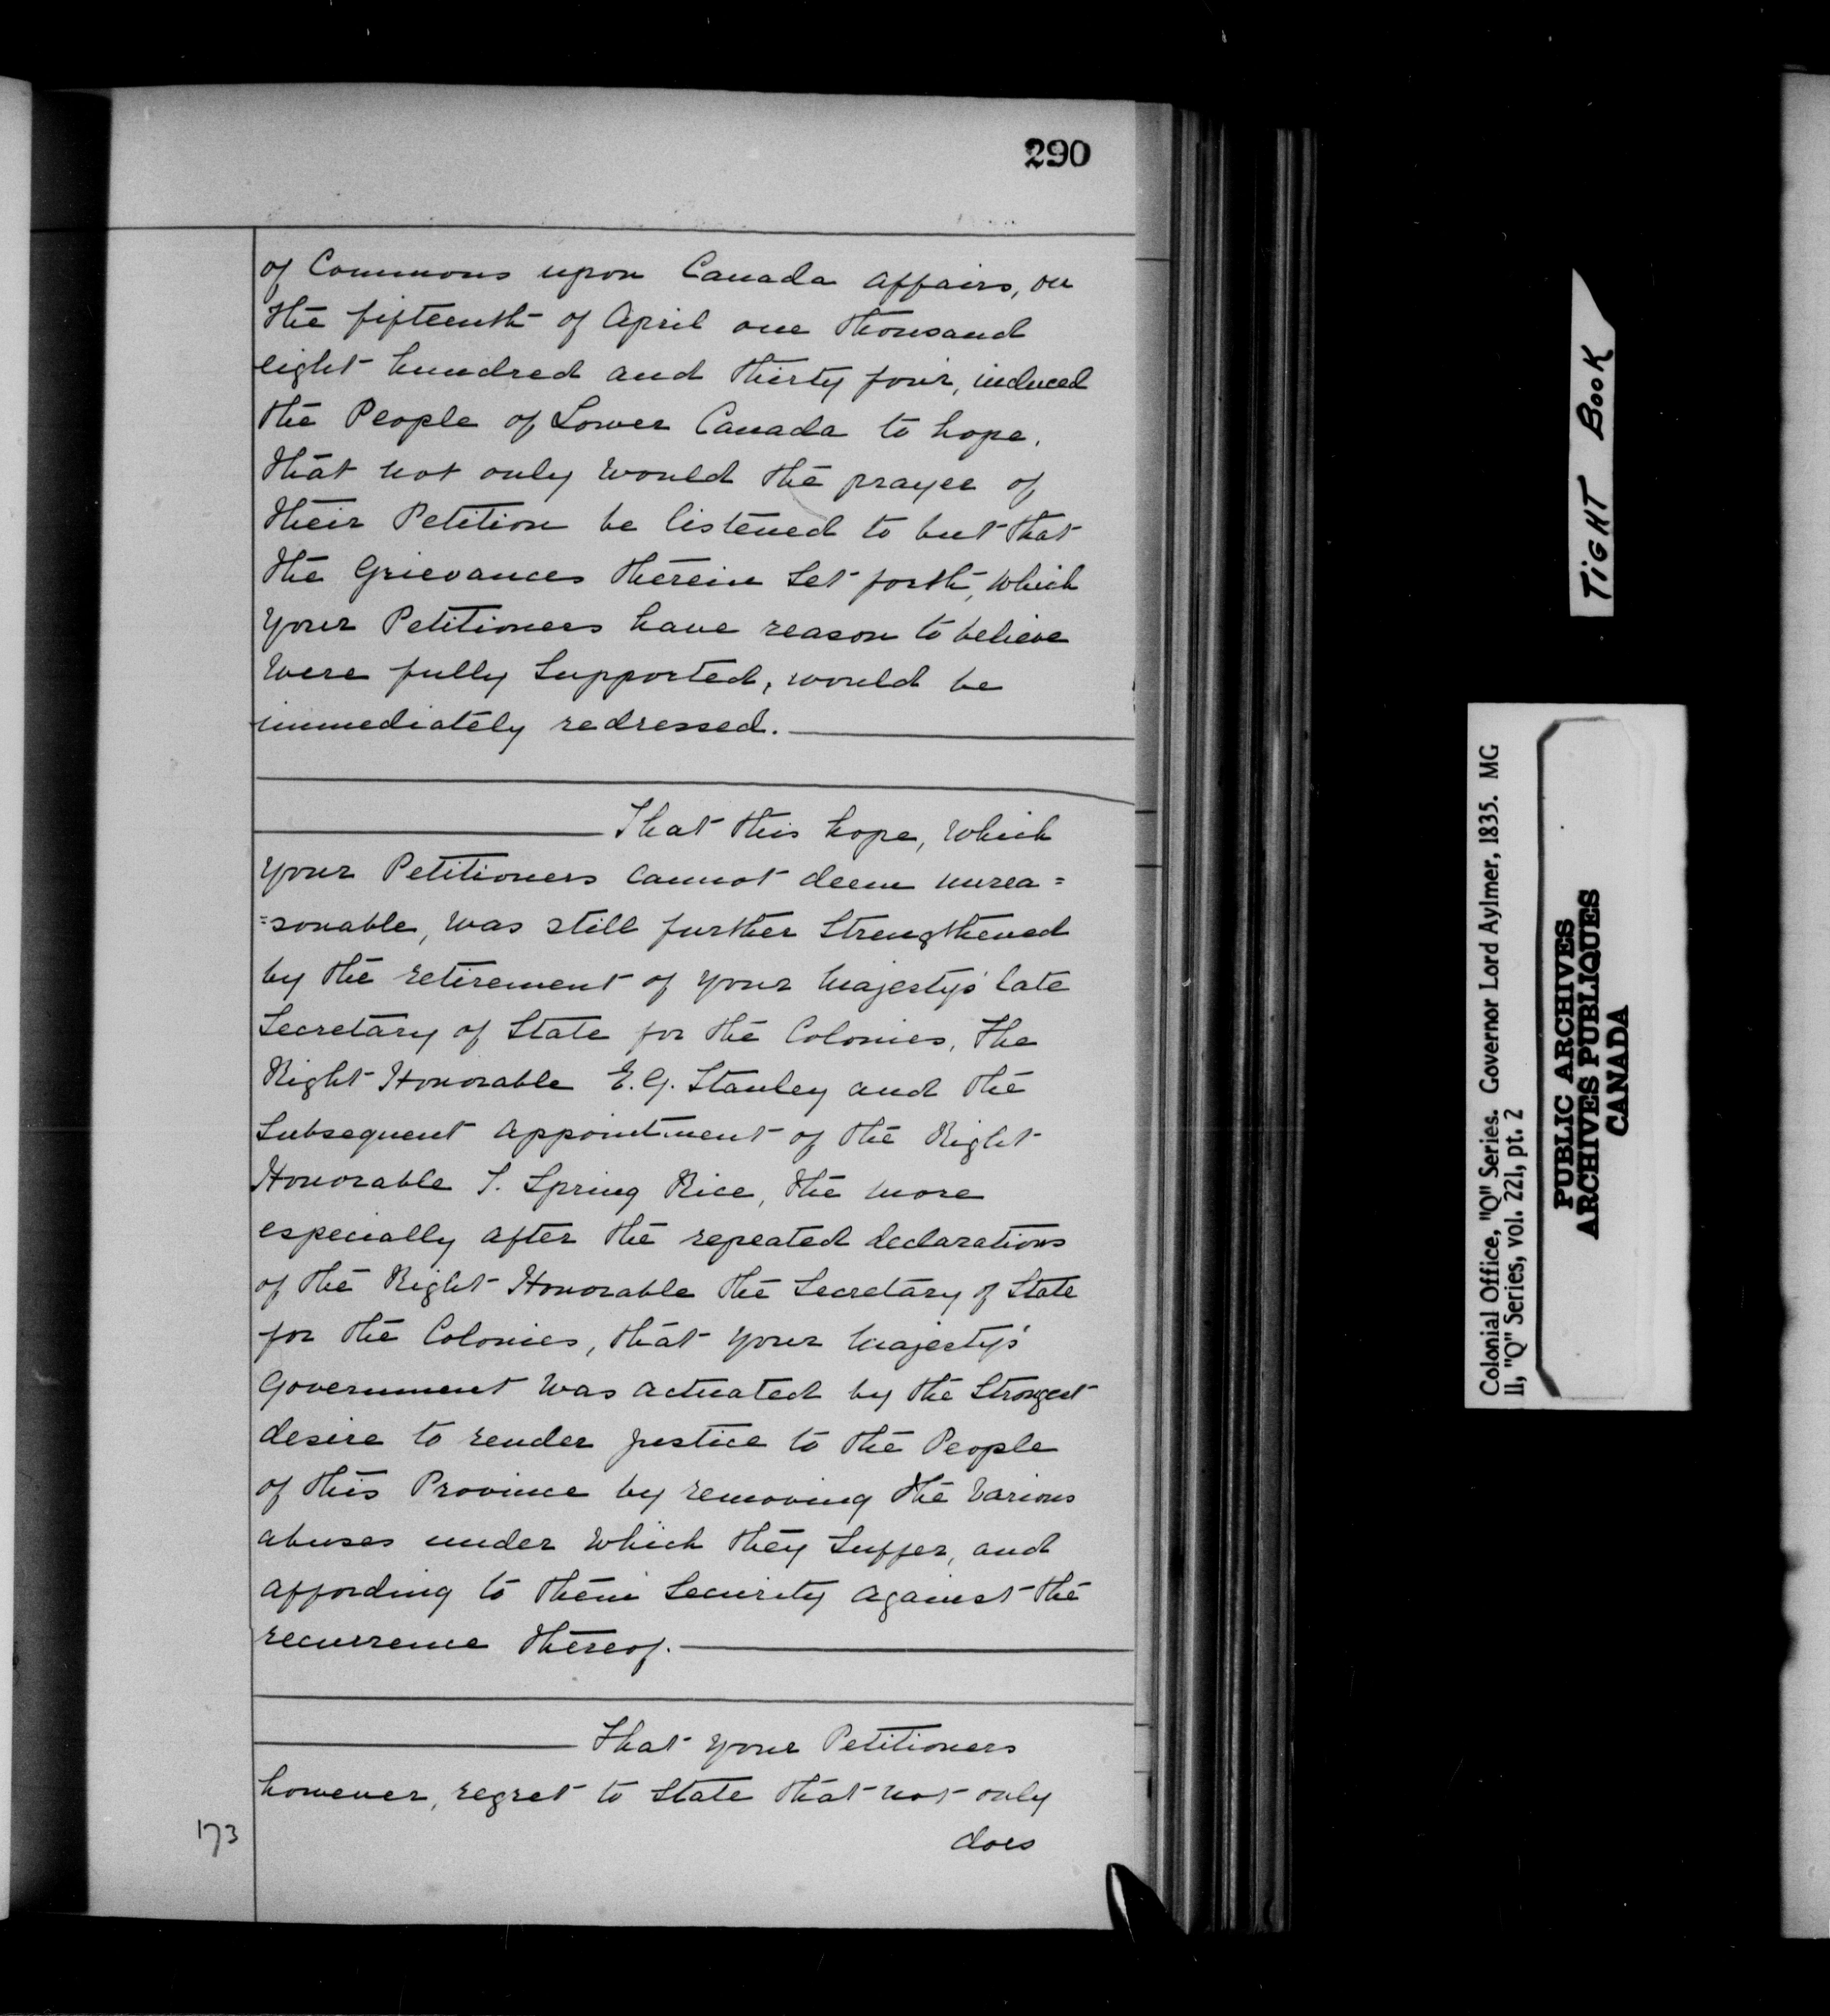 290
of Commons upon Canada affairs, on
the fifteenth of April one thousand
eight hundred and thirty four, induced
the People of Lower Canada to hope,
that not only would the prayer of
their Petition be listened to but that
the Grievances therein set forth, which
your Petitioners have reason to believe
were fully supported, would be
immediately redressed.
That this hope, which
your Petitioners cannot deem unrea=
=sonable, was still further strengthened
by the retirement of your Majesty's late
Secretary of State for the Colonies, the
Right Honorable E. G. Stanley and the
subsequent appointment of the Right
Honorable T. Spring Rice, the more
especially after the repeated declarations
of the Right Honorable the Secretary of State
for the Colonies, that your Majesty's
Government was actuated by the strongest
desire to render justice to the People
of this Province by removing the various
abuses under which they suffer, and
affording to them security against the
recurrence thereof.
That your Petitioners
however, regret to state that not only
does
173
TIGHT BOOK
Colonial Office, "Q" Series. Governor Lord Aylmer, 1835. MG
11, "Q" Series, vol. 221, pt. 2
PUBLIC ARCHIVES
ARCHIVES PUBLIQUES
CANADA